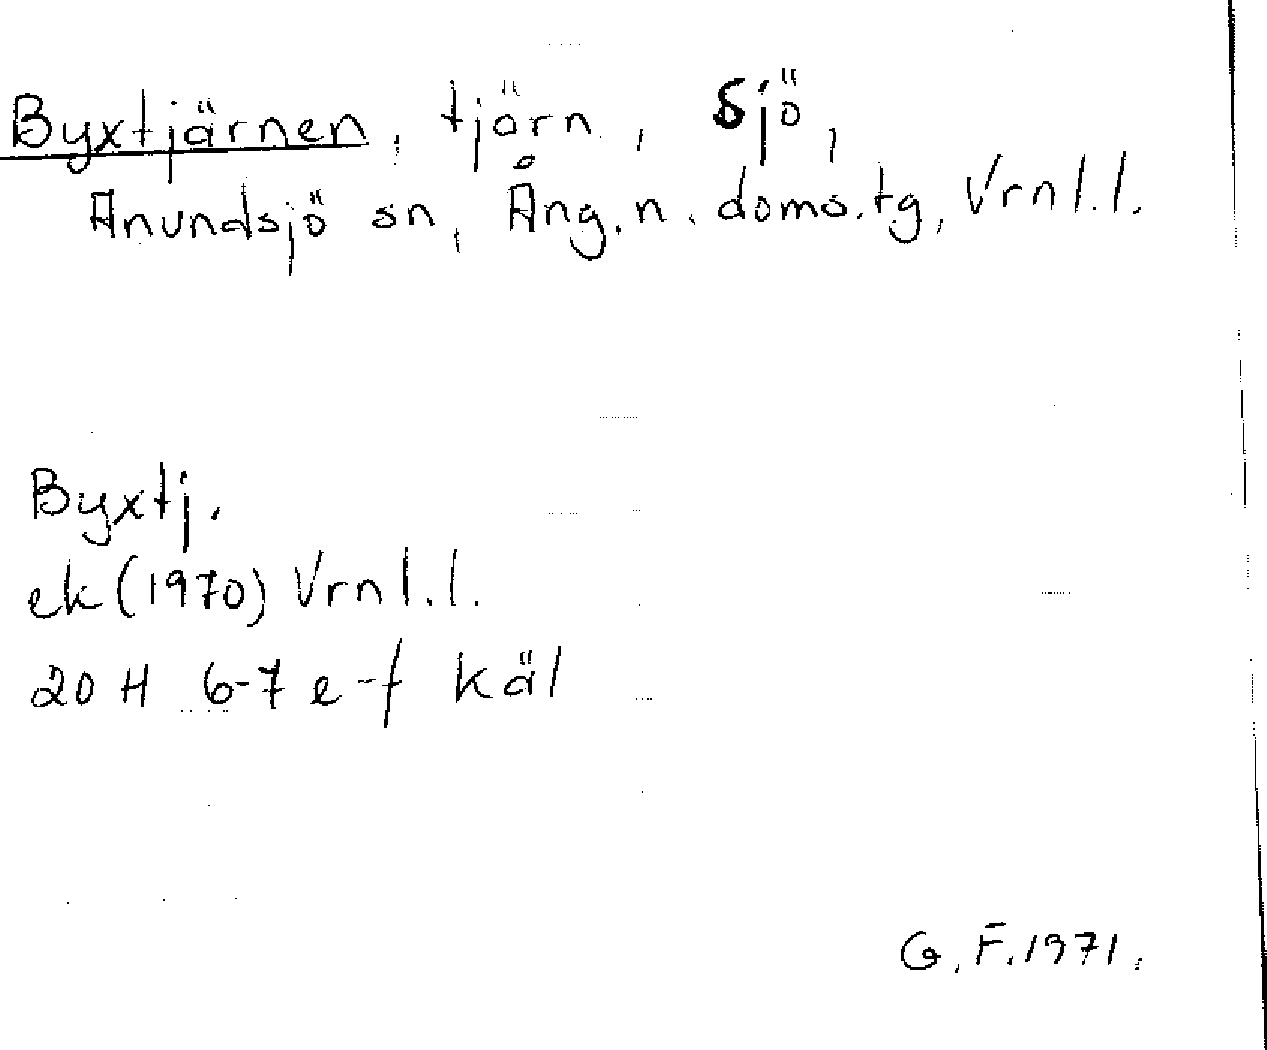 Byxtjärnen, tjärn, sjö,
Anundsjö sn, Ång. n. doms.tg, Vrnl.l.
Byxtj.
ek (1970) Vrnl.l.
20 H 6-7 e-f käl
G.F. 1971.